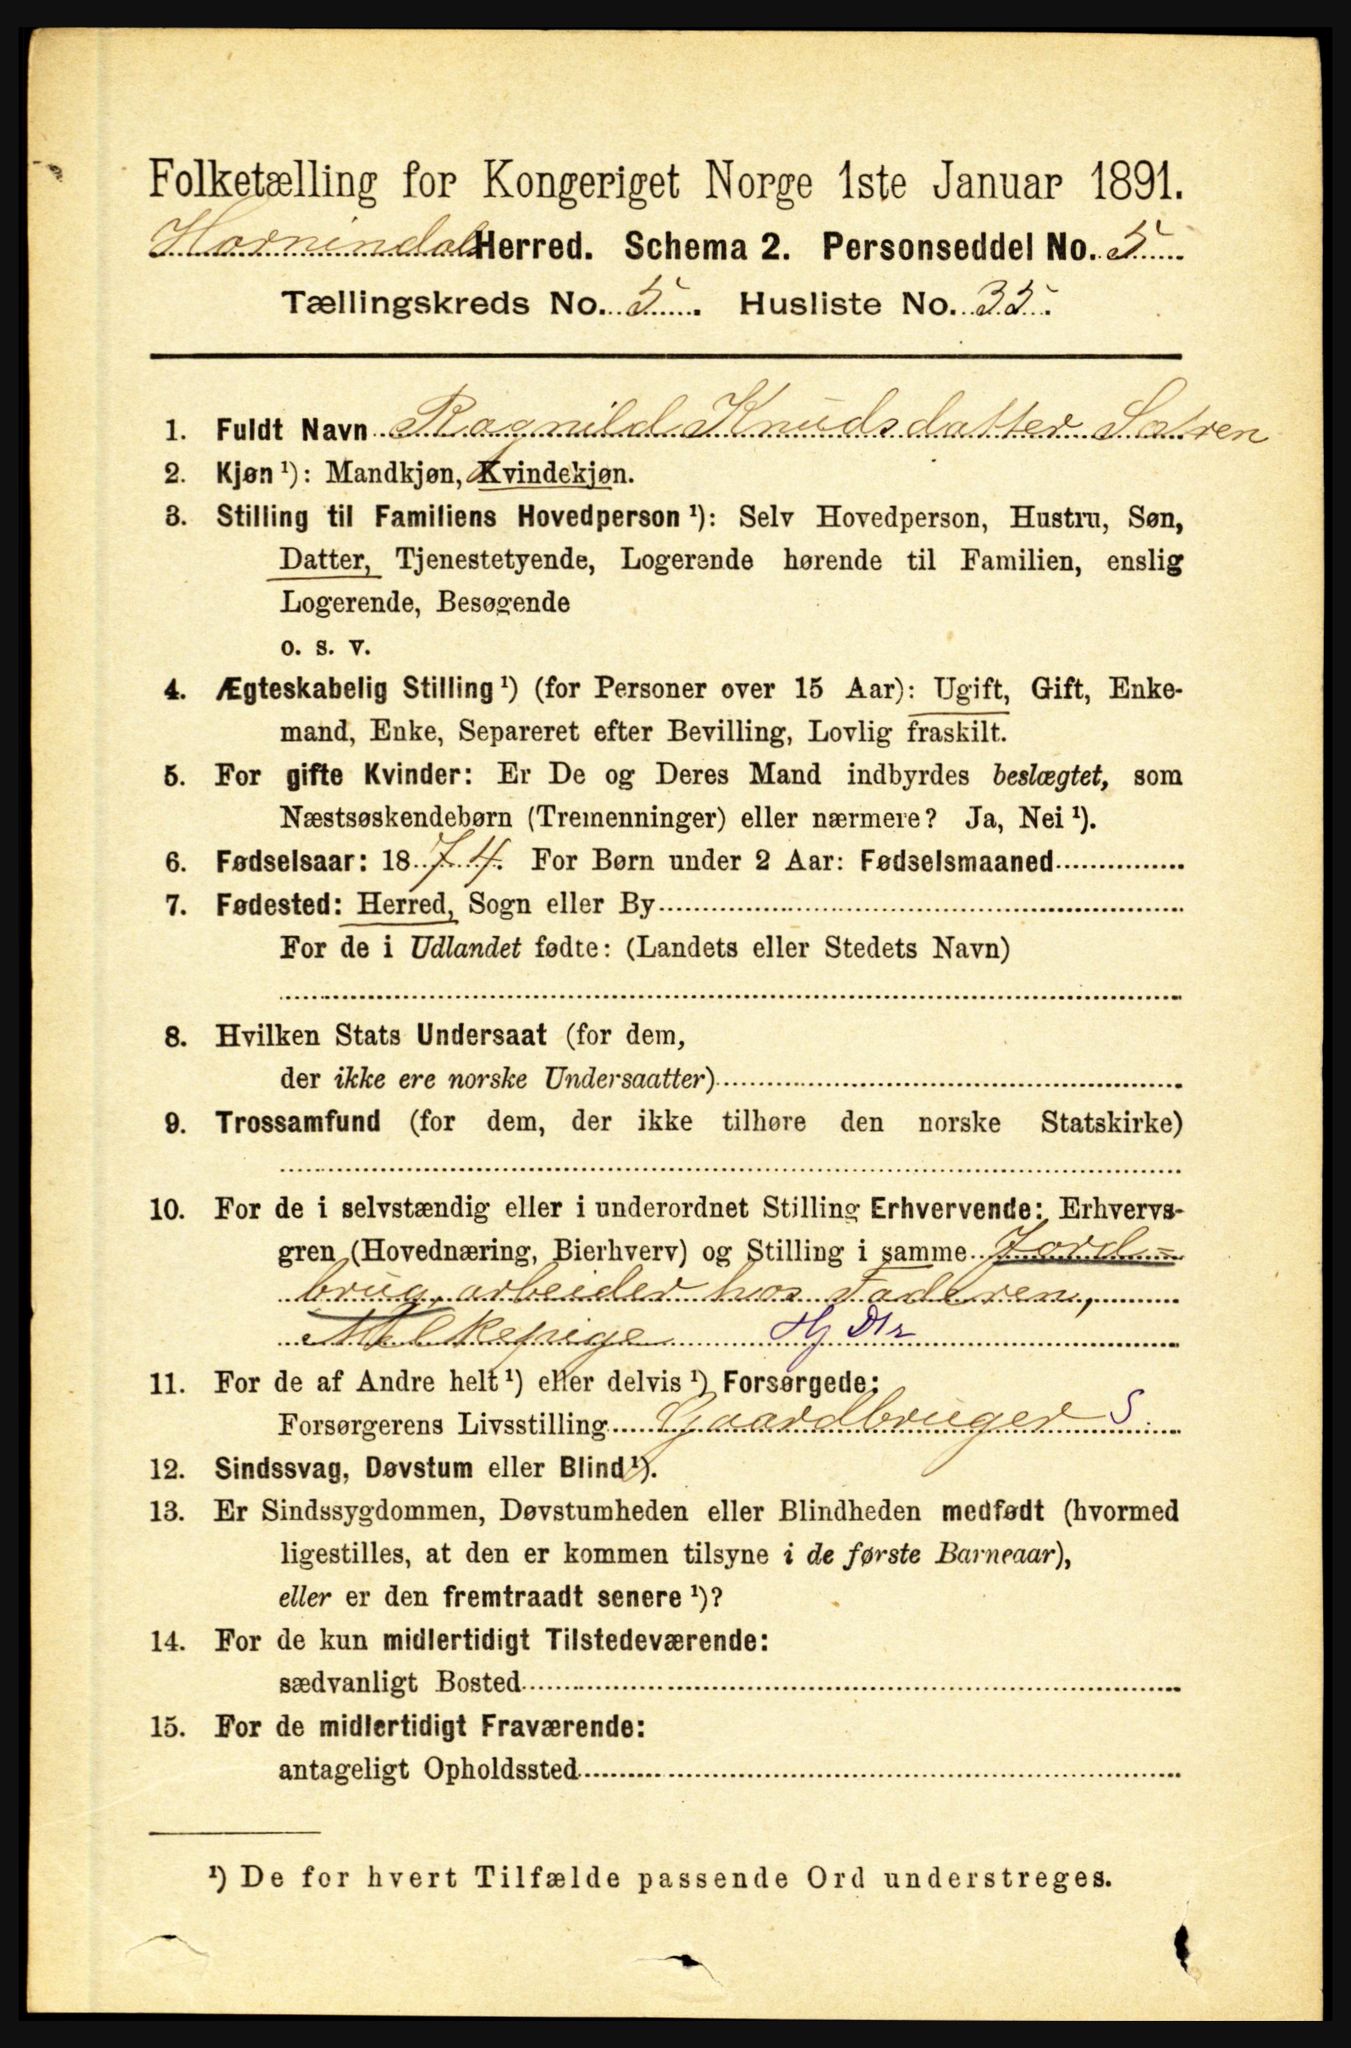 Folketælling for Kongeriget Norge 1ste Januar 1891.
Hornindal Herred. Schema 2. Personseddel No. 5
Tællingskreds No. 5. Husliste No. 35.
1. Fuldt Navn Ragnild Knudsdatter Sætren
2. Kjøn ¹): Mandkjøn, Kvindekjøn.
3. Stilling til Familiens Hovedperson ¹): Selv Hovedperson, Hustru, Søn,
Datter, Tjenestetyende, Logerende hørende til Familien, enslig
Logerende, Besøgende
o. s. v.
4. Ægteskabelig Stilling ¹) (for Personer over 15 Aar): Ugift, Gift, Enke-
mand, Enke, Separeret efter Bevilling, Lovlig fraskilt.
5. For gifte Kvinder: Er De og Deres Mand indbyrdes beslægtet, som
Næstsøskendebørn (Tremenninger) eller nærmere? Ja, Nei ¹).
6. Fødselsaar: 1874. For Børn under 2 Aar: Fødselsmaaned
7. Fødested: Herred, Sogn eller By
For de i Udlandet fødte: (Landets eller Stedets Navn)
8. Hvilken Stats Undersaat (for dem,
der ikke ere norske Undersaatter)
9. Trossamfund (for dem, der ikke tilhøre den norske Statskirke)
10. For de i selvstændig eller i underordnet Stilling Erhvervende: Erhvervs-
gren (Hovednæring, Bierhverv) og Stilling i samme Jord-
brug, arbeider hos Faderen,
Melkepige Hj Dtr
11. For de af Andre helt ¹) eller delvis ¹) Forsørgede:
Forsørgerens Livsstilling Gaardbruger S.
12. Sindssvag, Døvstum eller Blind ¹).
13. Er Sindssygdommen, Døvstumheden eller Blindheden medfødt (hvormed
ligestilles, at den er kommen tilsyne i de første Barneaar),
eller er den fremtraadt senere ¹)?
14. For de kun midlertidigt Tilstedeværende:
sædvanligt Bosted
15. For de midlertidigt Fraværende:
antageligt Opholdssted
¹) De for hvert Tilfælde passende Ord understreges.